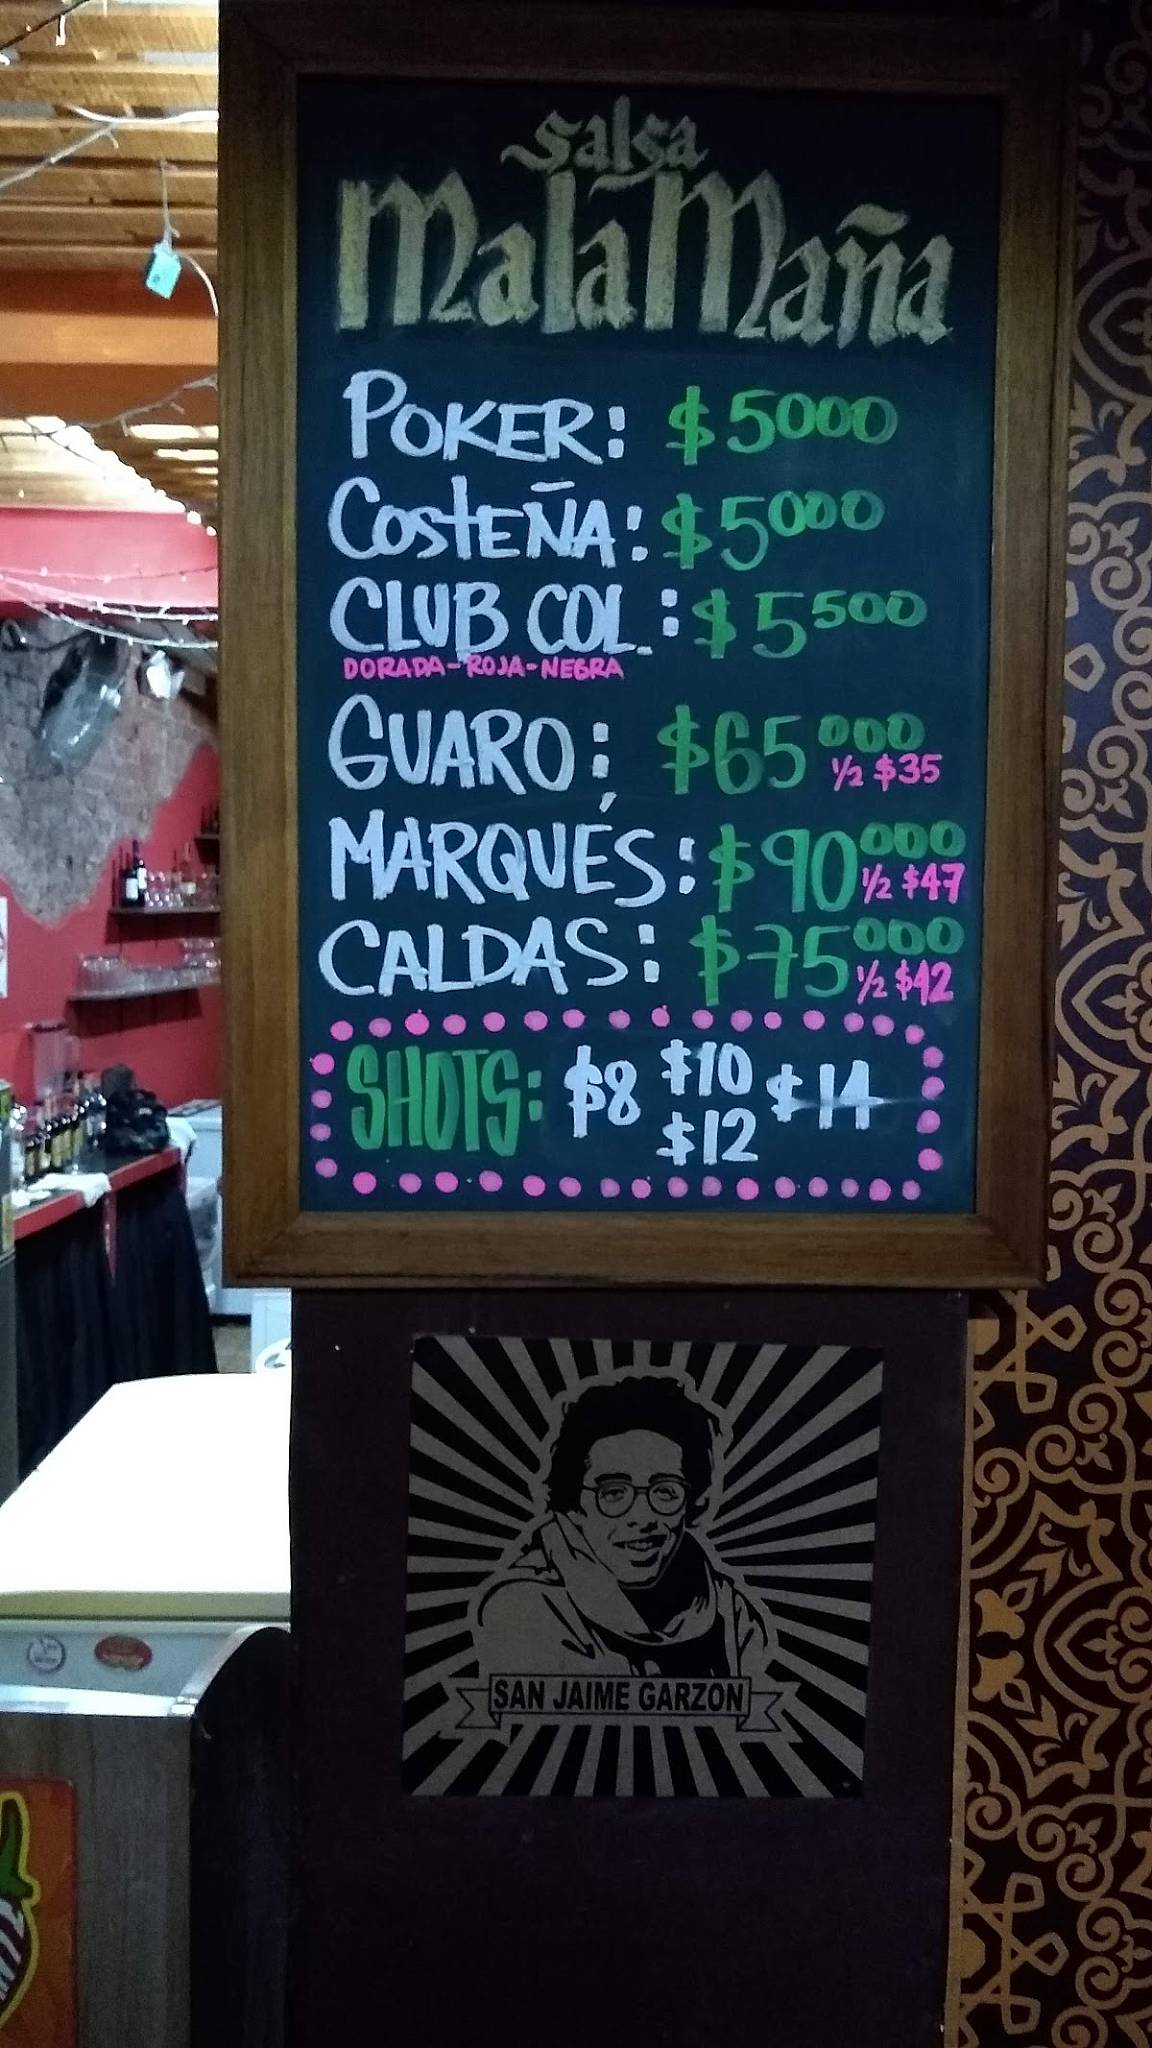 Salsa
Mala Maña
POKER: $5000
COSTEÑA: $5000
CLUB COL.: $5500
DORADA-ROJA-NEGRA
GUARO: $65000
1/2 $35
MARQUÉS: $90000
1/2 $47
CALDAS: $75000
1/2 $42
SHOTS: $8 $10 $12 $14
SAN JAIME GARZON